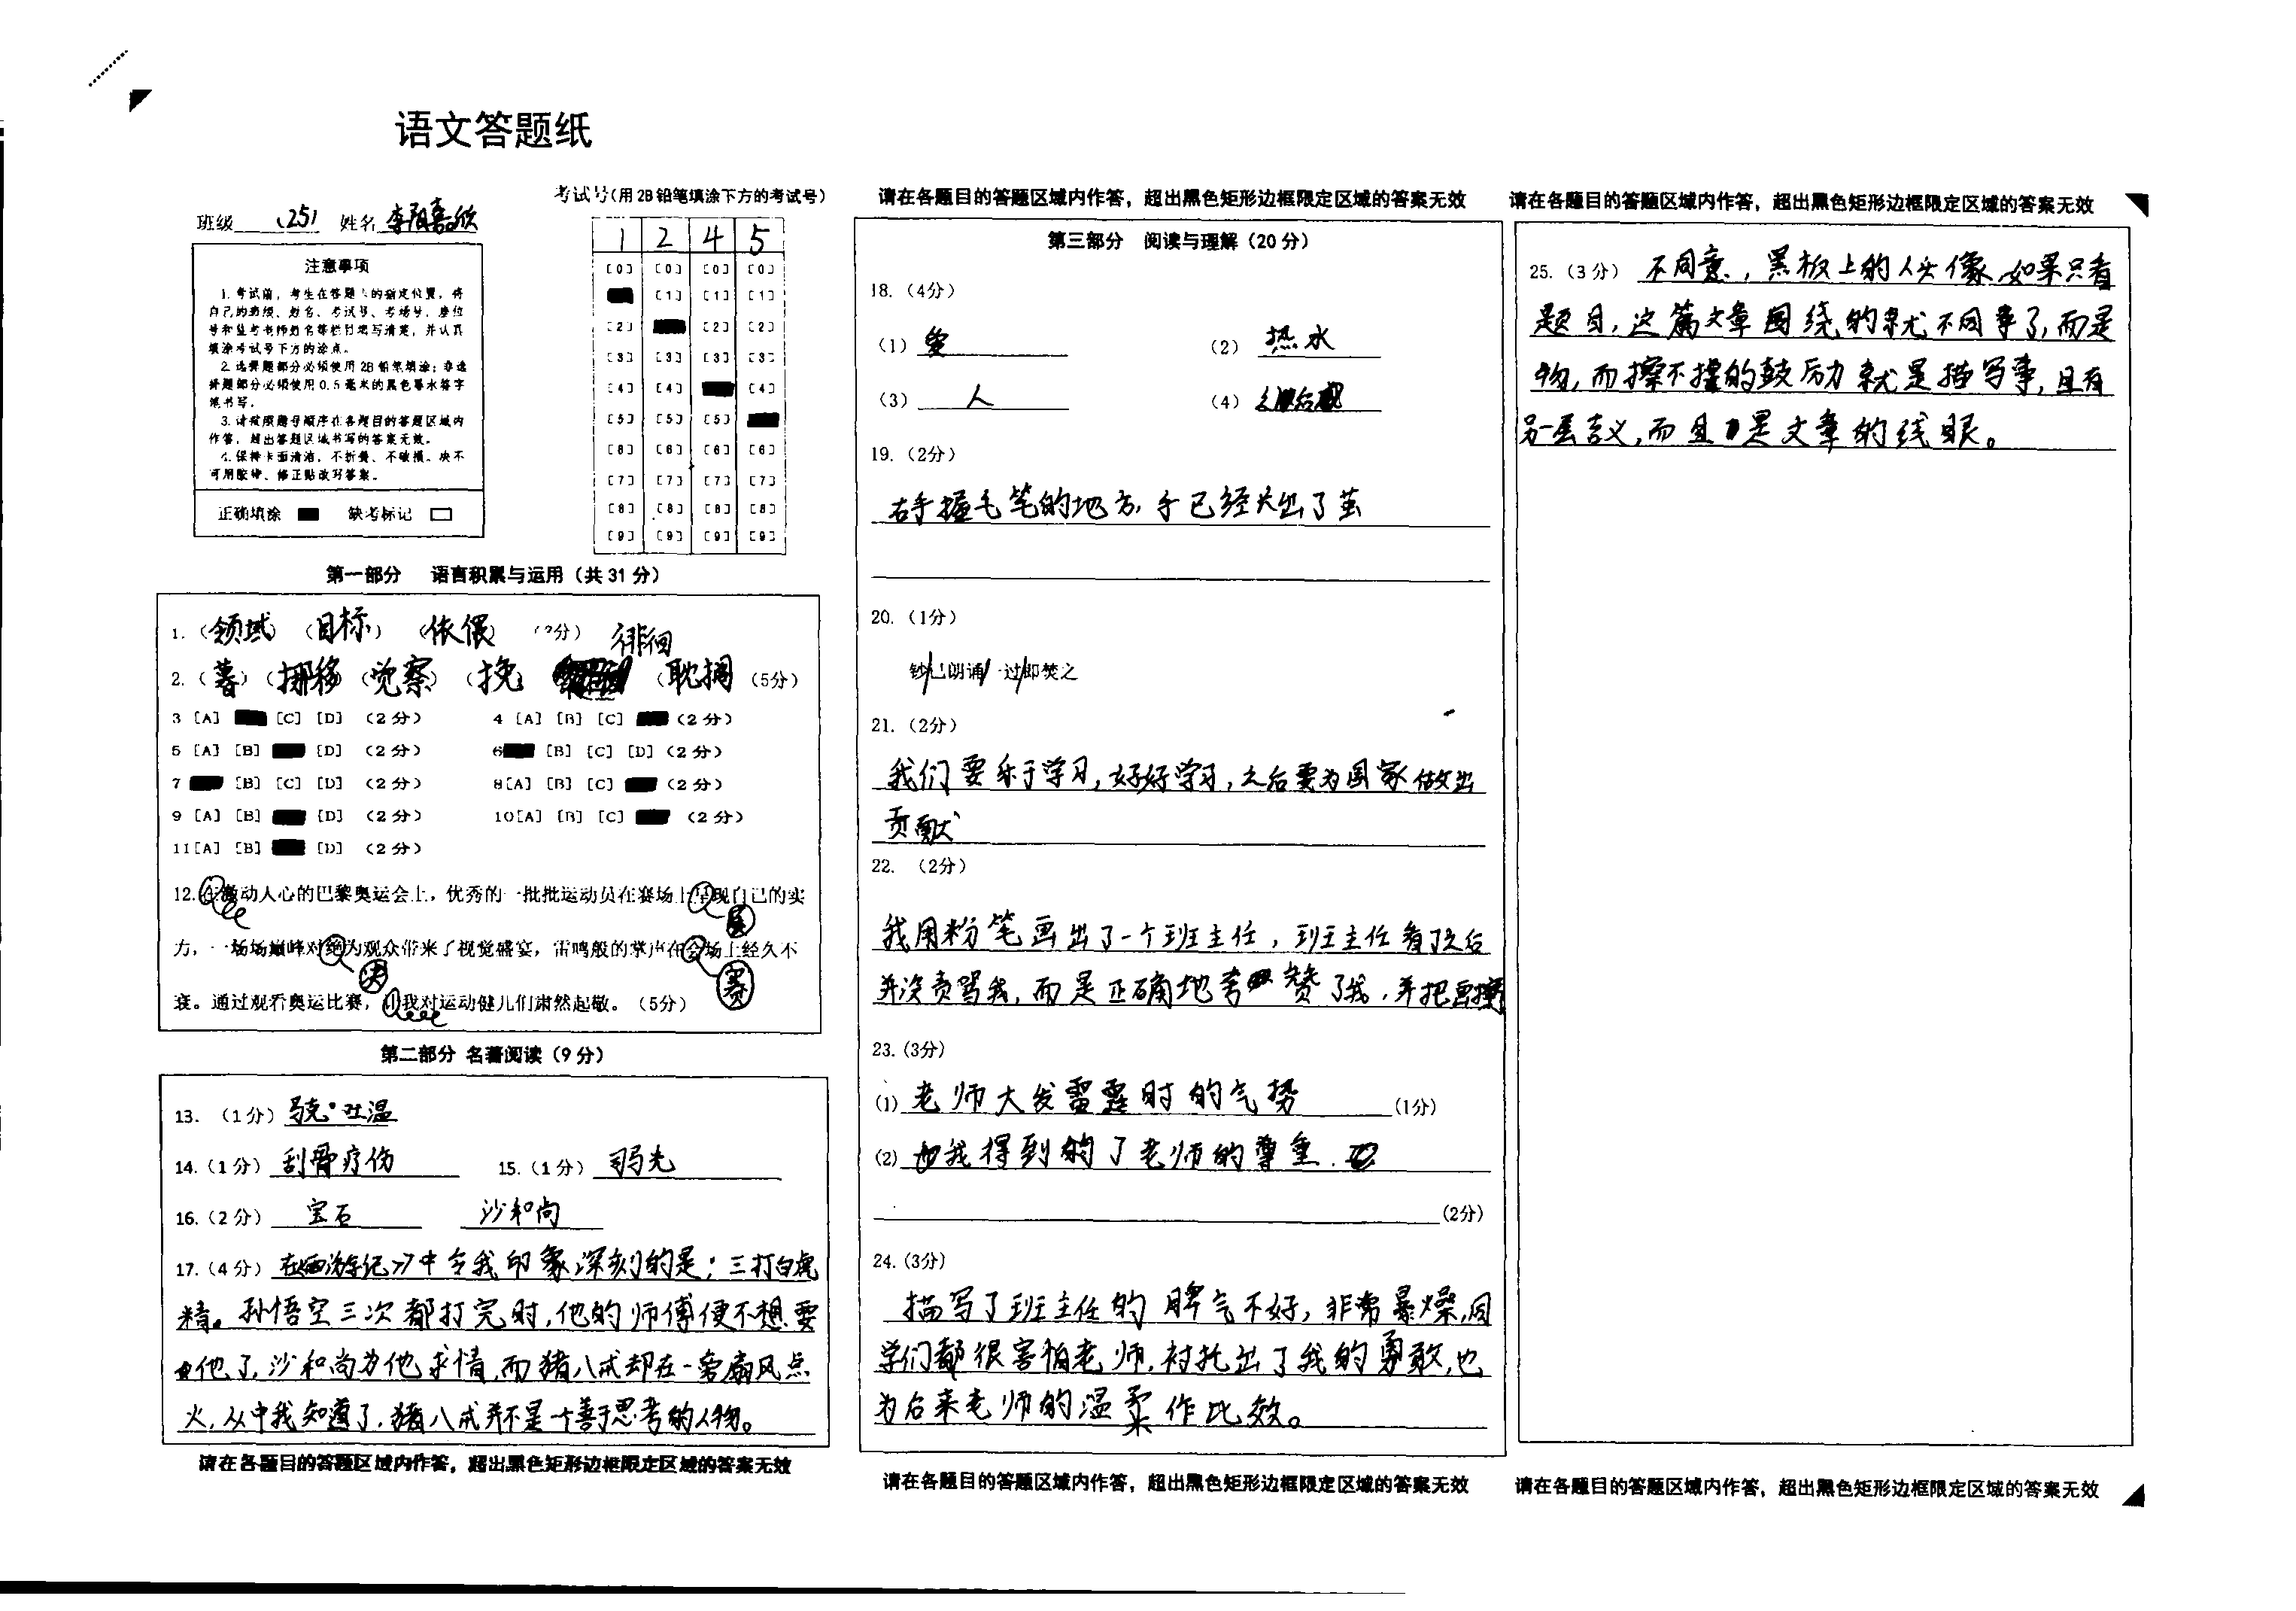 语文答题纸
考试号(用2B铅笔填涂下方的考试号)
班级 (25) 姓名 李阳嘉欣
1 2 4 5
注意事项
1.考试前，考生在答题卡的指定位置，将
自己的班级、姓名、考试号、考场号、座位
号和监考老师姓名等栏目填写清楚，并认真
填涂考试号下方的涂点。
2.选择题部分必须使用2B铅笔填涂；非选
择题部分必须使用0.5毫米的黑色墨水签字
笔书写。
3.请按照题号顺序在各题目的答题区域内
作答，超出答题区域书写的答案无效。
4.保持卡面清洁，不折叠、不破损。决不
可用胶带、修正贴改写答案。
正确填涂 缺考标记
[0] [0] [0] [0]
[1] [1] [1]
[2] [2] [2]
[3] [3] [3] [3]
[4] [4] [4]
[5] [5] [5]
[6] [6] [6] [6]
[7] [7] [7] [7]
[8] [8] [8] [8]
[9] [9] [9] [9]
第一部分 语言积累与运用（共31分）
1.（领域）（目标）（依偎）（2分） 徘徊
2.（暮）（挪移）（觉察）（挽 （耽搁 （5分）
3 [A] [C] [D] （2分） 4 [A] [B] [C] （2分）
5 [A] [B] [D] （2分） 6 [B] [C] [D]（2分）
7 [B] [C] [D] （2分） 8[A] [B] [C] （2分）
9 [A] [B] [D] （2分） 10[A] [B] [C] （2分）
11[A] [B] [D] （2分）
12.在激动人心的巴黎奥运会上，优秀的一批批运动员在赛场上呈现自己的实
展
力，一场场巅峰对绝为观众带来了视觉盛宴，雷鸣般的掌声在会场上经久不
决 赛
衰。通过观看奥运比赛，让我对运动健儿们肃然起敬。（5分）
第二部分 名著阅读（9分）
13.（1分）马克·吐温
14.（1分）刮骨疗伤 15.（1分）司马光
16.（2分） 宝石 沙和尚
17.（4分）在《西游记》中令我印象深刻的是：三打白虎
精。孙悟空三次都打完时，他的师傅便不想要
他了，沙和尚为他求情，而猪八戒却在一旁扇风点
火，从中我知道了，猪八戒并不是一个善于思考的人物。
请在各题目的答题区域内作答，超出黑色矩形边框限定区域的答案无效
请在各题目的答题区域内作答，超出黑色矩形边框限定区域的答案无效
第三部分 阅读与理解（20分）
18.（4分）
（1）爱 （2）热水
（3）人 （4）
19.（2分）
右手握毛笔的地方，手已经长出了茧
20.（1分）
钞/已朗诵/一过/即焚之
21.（2分）
我们要乐于学习，好好学习，之后要为国家做出
贡献
22. （2分）
我用粉笔画出了一个班主任，班主任看了之后
并没责骂我，而是正确地夸赞了我，并把画擦
23.(3分)
(1) 老师大发雷霆时的气势 (1分)
(2) 我得到的了老师的尊重.
(2分)
24.(3分)
描写了班主任的脾气不好，非常暴燥，同
学们都很害怕老师，衬托出了我的勇敢，也
为后来老师的温柔作比效。
请在各题目的答题区域内作答，超出黑色矩形边框限定区域的答案无效
请在各题目的答题区域内作答，超出黑色矩形边框限定区域的答案无效
25.（3分）不同意，黑板上的人头像，如果只看
题目，这篇文章围绕的就不同事了，而是
物，而擦不擦的鼓励就是描写事，且有
另一层言义，而且是文章的线眼。
请在各题目的答题区域内作答，超出黑色矩形边框限定区域的答案无效